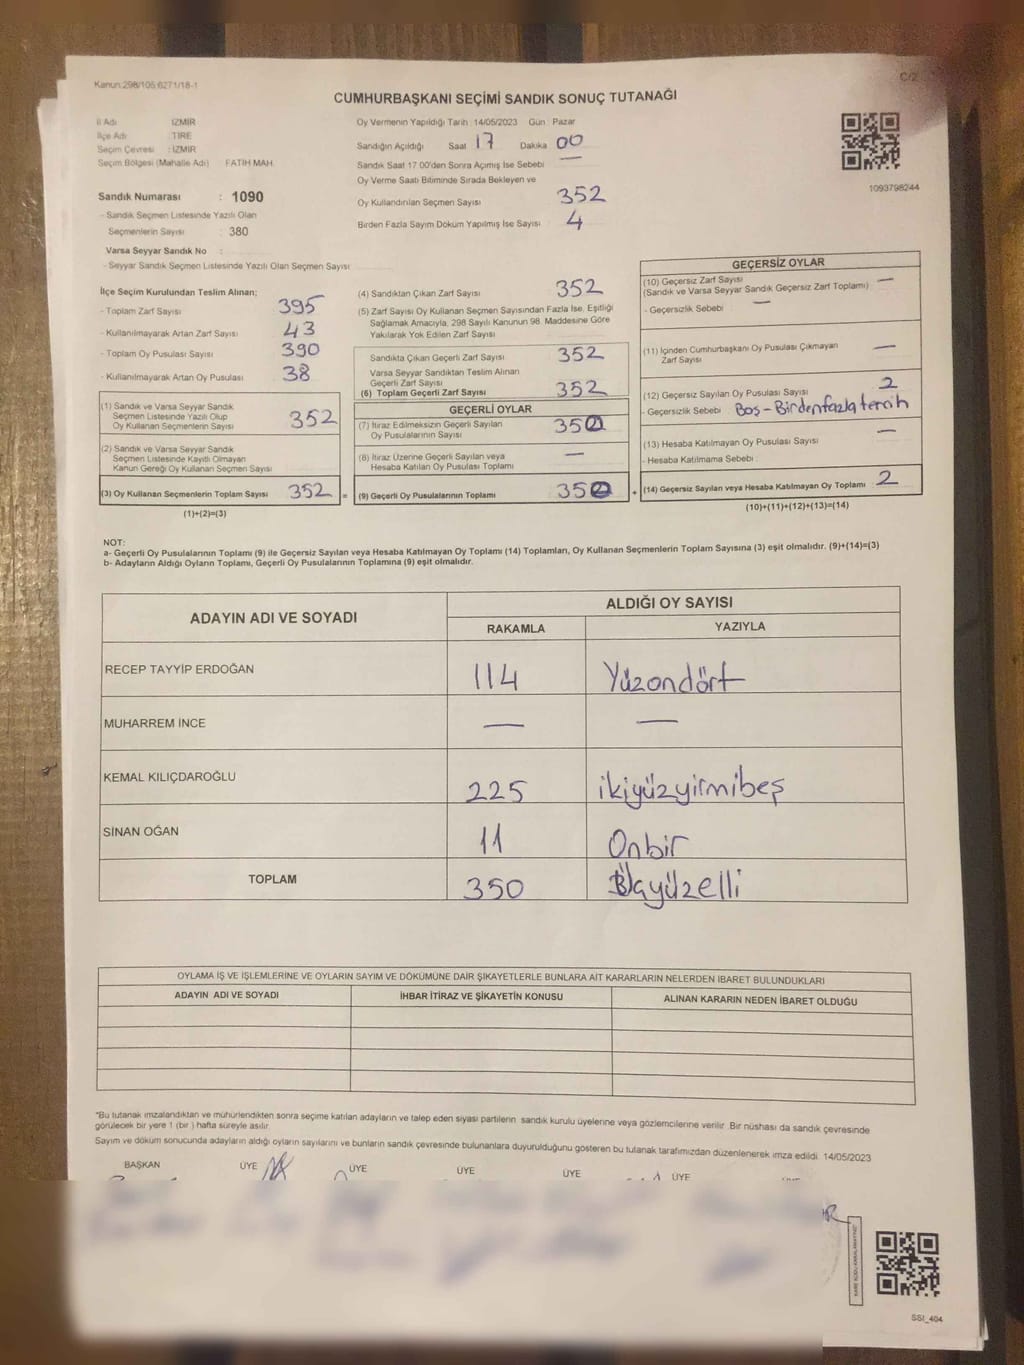 Kanun:298/105,6271/18-1
C/2
CUMHURBAŞKANI SEÇİMİ SANDIK SONUÇ TUTANAĞI
İl Adı : İZMİR
İlçe Adı : TİRE
Seçim Çevresi : İZMİR
Seçim Bölgesi (Mahalle Adı) FATİH MAH.
Sandık Numarası : 1090
- Sandık Seçmen Listesinde Yazılı Olan
Seçmenlerin Sayısı : 380
Varsa Seyyar Sandık No :
- Seyyar Sandık Seçmen Listesinde Yazılı Olan Seçmen Sayısı
Oy Vermenin Yapıldığı Tarih 14/05/2023 Gün Pazar
Sandığın Açıldığı Saat 17 Dakika 00
Sandık Saat 17.00'den Sonra Açımış İse Sebebi —
Oy Verme Saati Bitiminde Sırada Bekleyen ve
Oy Kullandırılan Seçmen Sayısı 352
Birden Fazla Sayım Döküm Yapılmış İse Sayısı 4
1093798244
İlçe Seçim Kurulundan Teslim Alınan;
- Toplam Zarf Sayısı 395
- Kullanılmayarak Artan Zarf Sayısı 43
- Toplam Oy Pusulası Sayısı 390
- Kullanılmayarak Artan Oy Pusulası 38
(1) Sandık ve Varsa Seyyar Sandık
Seçmen Listesinde Yazılı Olup
Oy Kullanan Seçmenlerin Sayısı 352
(2) Sandık ve Varsa Seyyar Sandık
Seçmen Listesinde Kayıtlı Olmayan
Kanun Gereği Oy Kullanan Seçmen Sayısı
(3) Oy Kullanan Seçmenlerin Toplam Sayısı 352 =
(1)+(2)=(3)
(4) Sandıktan Çıkan Zarf Sayısı 352
(5) Zarf Sayısı Oy Kullanan Seçmen Sayısından Fazla İse, Eşitliği
Sağlamak Amacıyla, 298 Sayılı Kanunun 98. Maddesine Göre
Yakılarak Yok Edilen Zarf Sayısı
Sandıkta Çıkan Geçerli Zarf Sayısı 352
Varsa Seyyar Sandıktan Teslim Alınan
Geçerli Zarf Sayısı
(6) Toplam Geçerli Zarf Sayısı 352
GEÇERLİ OYLAR
(7) İtiraz Edilmeksizin Geçerli Sayılan
Oy Pusulalarının Sayısı 350
(8) İtiraz Üzerine Geçerli Sayılan veya
Hesaba Katılan Oy Pusulası Toplamı —
(9) Geçerli Oy Pusulalarının Toplamı 350 +
GEÇERSİZ OYLAR
(10) Geçersiz Zarf Sayısı —
(Sandık ve Varsa Seyyar Sandık Geçersiz Zarf Toplamı)
- Geçersizlik Sebebi —
(11) İçinden Cumhurbaşkanı Oy Pusulası Çıkmayan
Zarf Sayısı —
(12) Geçersiz Sayılan Oy Pusulası Sayısı 2
- Geçersizlik Sebebi Boş-Birdenfazla tercih
(13) Hesaba Katılmayan Oy Pusulası Sayısı —
- Hesaba Katılmama Sebebi :
(14) Geçersiz Sayılan veya Hesaba Katılmayan Oy Toplamı 2
(10)+(11)+(12)+(13)=(14)
NOT:
a- Geçerli Oy Pusulalarının Toplamı (9) ile Geçersiz Sayılan veya Hesaba Katılmayan Oy Toplamı (14) Toplamları, Oy Kullanan Seçmenlerin Toplam Sayısına (3) eşit olmalıdır. (9)+(14)=(3)
b- Adayların Aldığı Oyların Toplamı, Geçerli Oy Pusulalarının Toplamına (9) eşit olmalıdır.
ADAYIN ADI VE SOYADI
ALDIĞI OY SAYISI
RAKAMLA YAZIYLA
RECEP TAYYİP ERDOĞAN 114 Yüzondört
MUHARREM İNCE — —
KEMAL KILIÇDAROĞLU 225 ikiyüzyirmibeş
SİNAN OĞAN 11 Onbir
TOPLAM 350 Üçyüzelli
OYLAMA İŞ VE İŞLEMLERİNE VE OYLARIN SAYIM VE DÖKÜMÜNE DAİR ŞİKAYETLERLE BUNLARA AİT KARARLARIN NELERDEN İBARET BULUNDUKLARI
ADAYIN ADI VE SOYADI İHBAR İTİRAZ VE ŞİKAYETİN KONUSU ALINAN KARARIN NEDEN İBARET OLDUĞU
*Bu tutanak imzalandıktan ve mühürlendikten sonra seçime katılan adayların ve talep eden siyasi partilerin sandık kurulu üyelerine veya gözlemcilerine verilir. Bir nüshası da sandık çevresinde
görülecek bir yere 1 (bir ) hafta süreyle asılır.
Sayım ve döküm sonucunda adayların aldığı oyların sayılarını ve bunların sandık çevresinde bulunanlara duyurulduğunu gösteren bu tutanak tarafımızdan düzenlenerek imza edildi. 14/05/2023
BAŞKAN ÜYE ÜYE ÜYE ÜYE ÜYE
SSI_404